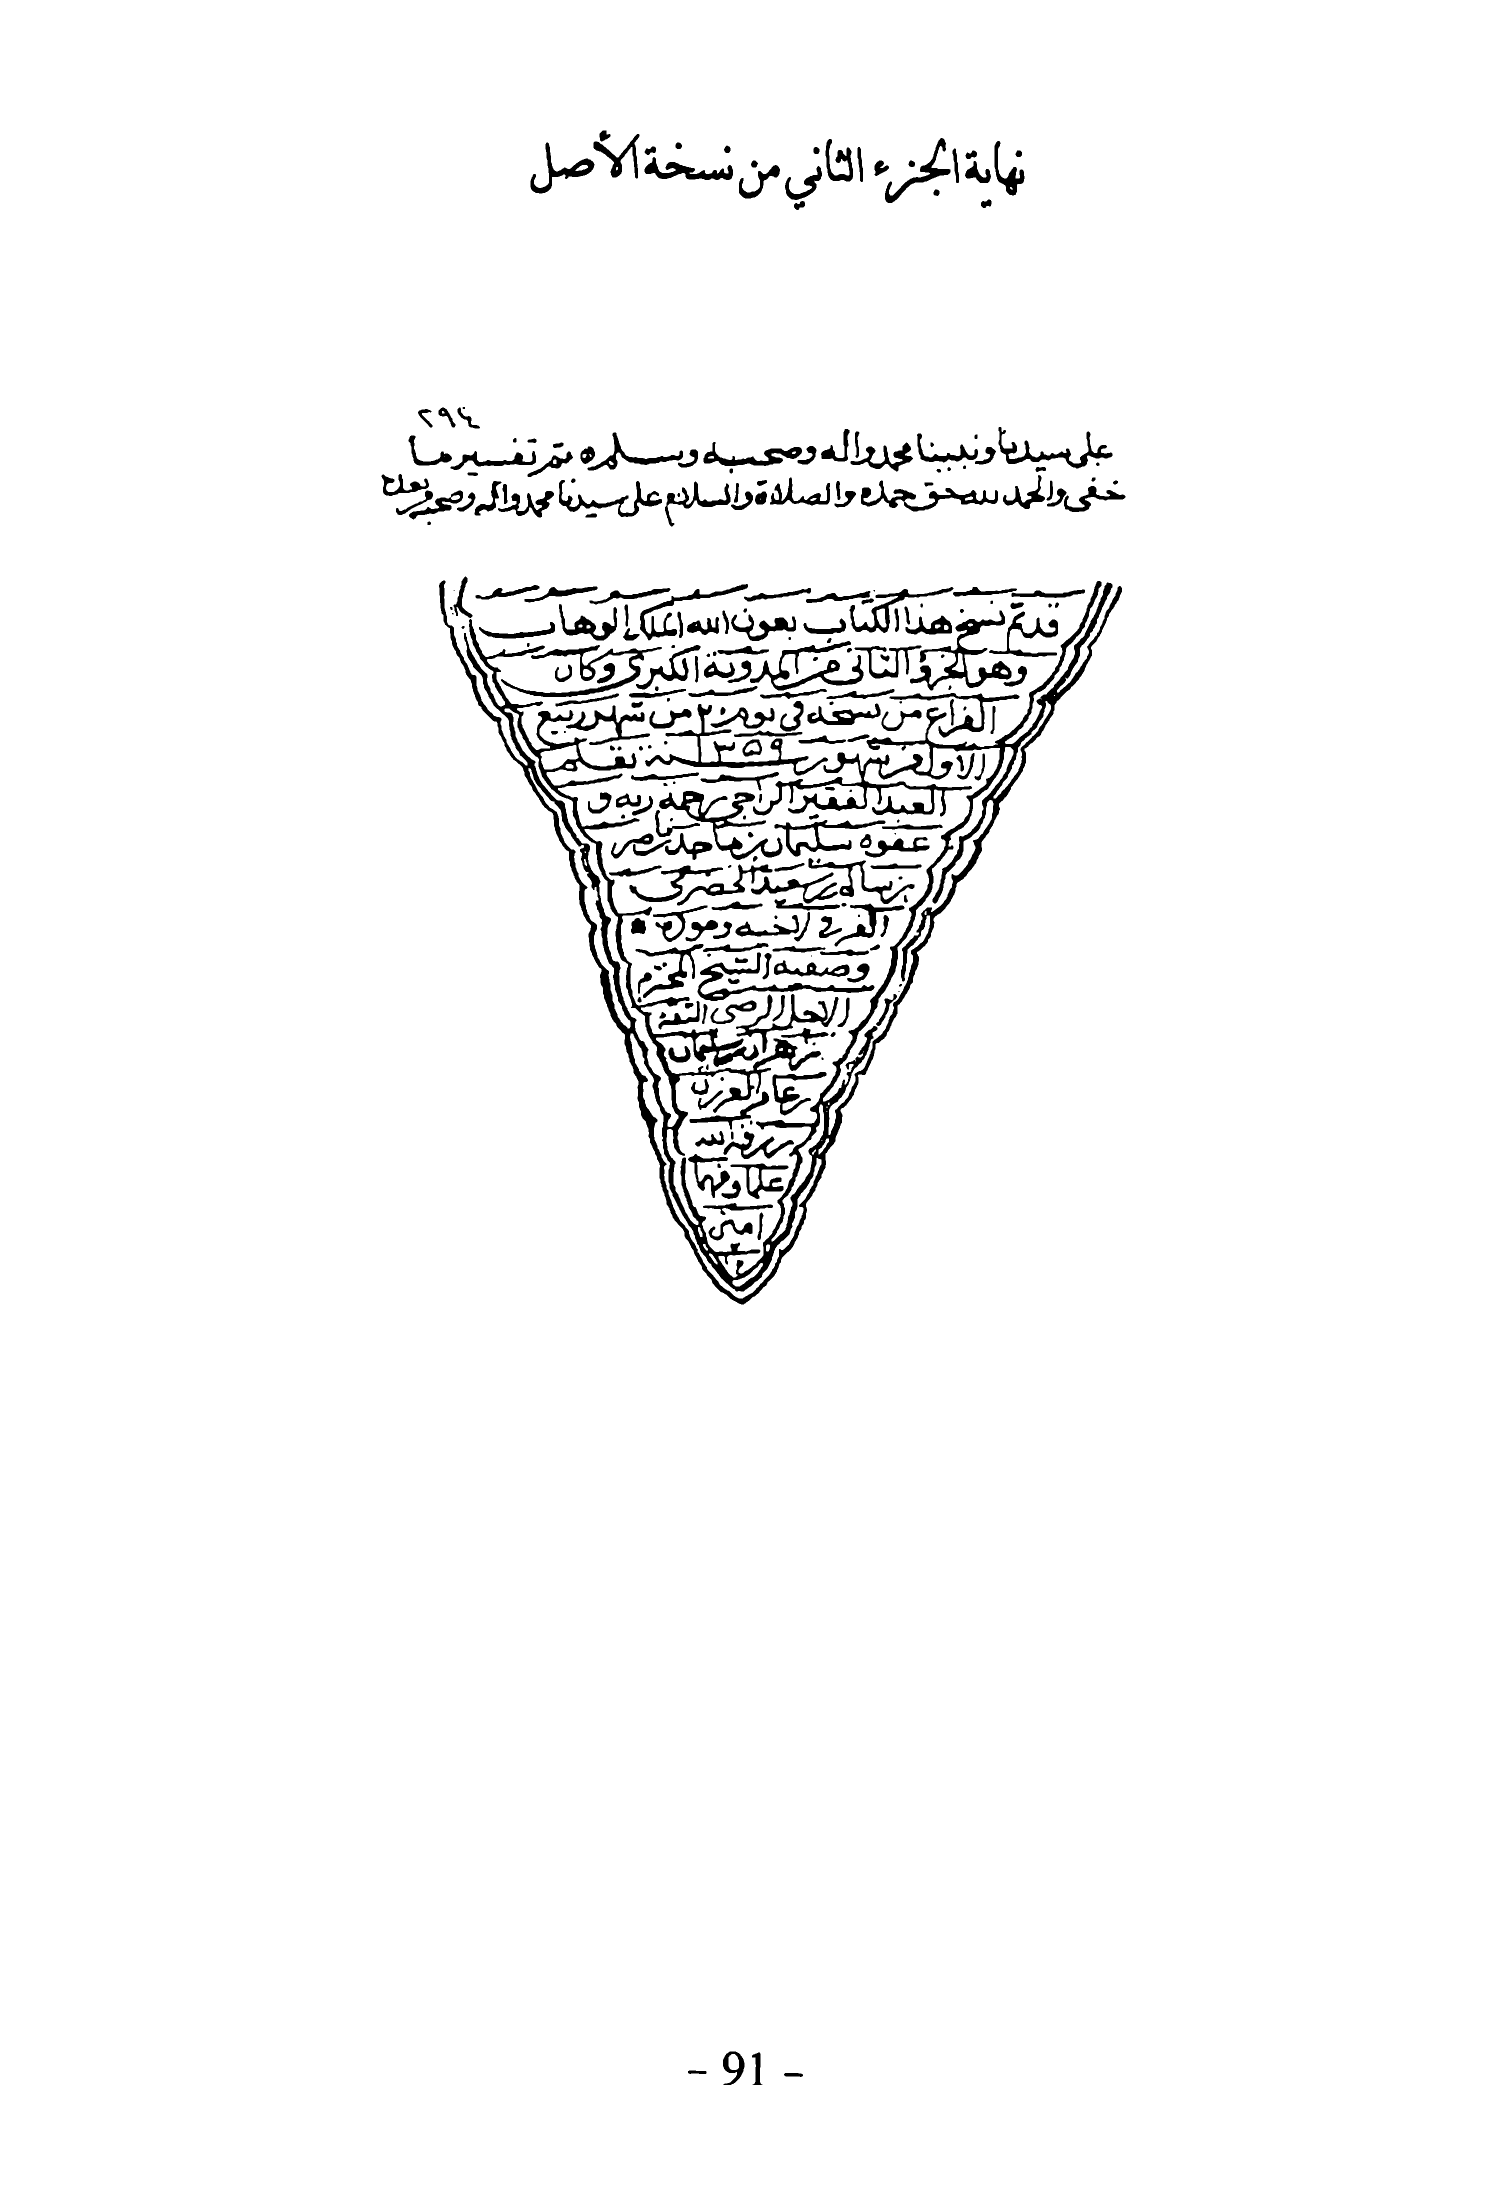 نهاية الجزء الثاني من نسخة الأصل
٢٩٤
على سيدنا ونبينا محمد واله وصحبه وسلم ه تم تفسير ما
خفى والحمد لله حق حمده والصلاة والسلام على سيدنا محمد واله وصحبه
قد تم نسخ هذا الكتاب بعون الله الملك الوهاب
وهو الجزؤ الثانى من المدونة الكبرى وكان
الفراغ من نسخه في يوم ٢٠ من شهر ربيع
الاول من شهور سنة ١٣٥٩ بقلم
العبد الفقير الراجي رحمة ربه و
عفوه سليمان بن ماجد بن ناصر
بن سالم بن سعيد الحضرمي
لاخيه
وصفيه الشيخ المحترم
الاجل الرضي الثقة
زهران بن سليمان
بن عامر العزري
رزقه الله
علما وفهما
امين
- 91 -